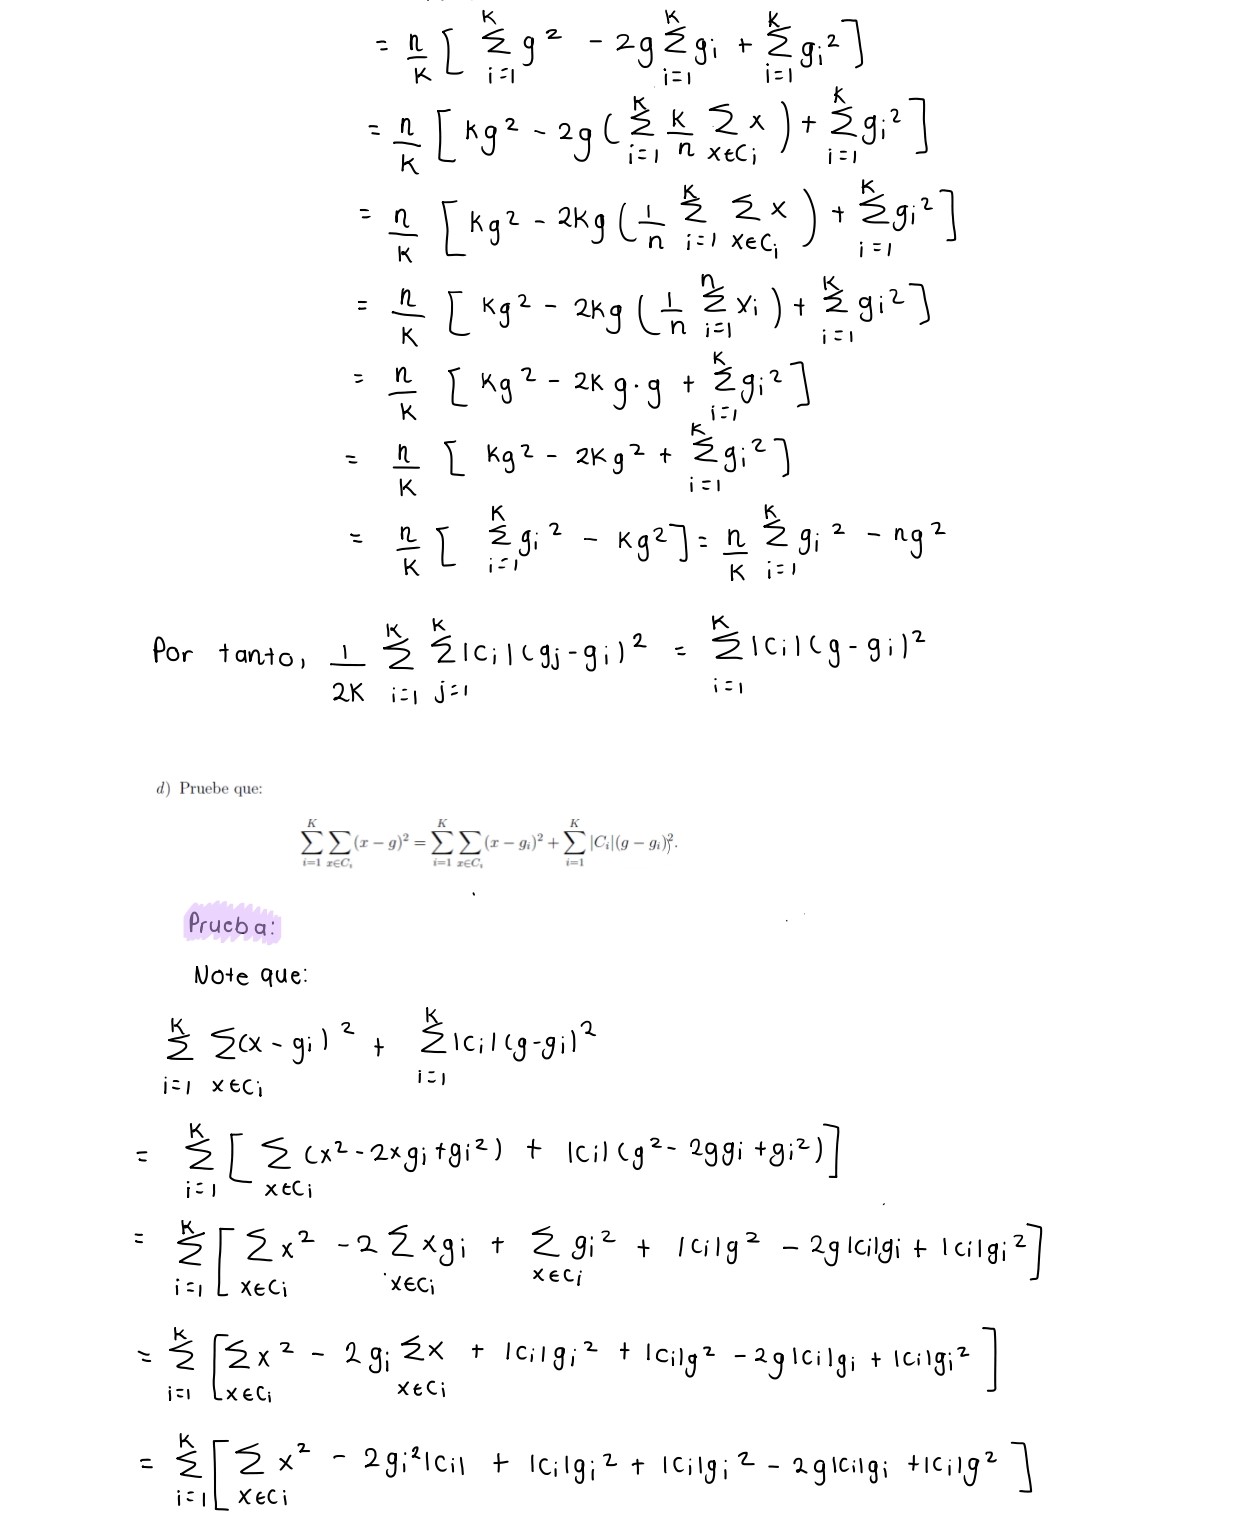 = n/K [ K∑i=1 g² - 2g K∑i=1 gi + K∑i=1 gi² ]
= n/K [ Kg² - 2g ( K∑i=1 K/n ∑x∈Ci x ) + K∑i=1 gi² ]
= n/K [ Kg² - 2Kg ( 1/n K∑i=1 ∑x∈Ci x ) + K∑i=1 gi² ]
= n/K [ Kg² - 2Kg ( 1/n n∑i=1 xi ) + K∑i=1 gi² ]
= n/K [ Kg² - 2K g·g + K∑i=1 gi² ]
= n/K [ Kg² - 2Kg² + K∑i=1 gi² ]
= n/K [ K∑i=1 gi² - Kg² ] = n/K K∑i=1 gi² - ng²
Por tanto, 1/2K K∑i=1 K∑j=1 |Ci|(gj-gi)² = K∑i=1 |Ci|(g-gi)²
d) Pruebe que:
K∑i=1 ∑x∈Ci (x - g)² = K∑i=1 ∑x∈Ci (x - gi)² + K∑i=1 |Ci|(g - gi)².
Prueba:
Note que:
K∑i=1 ∑x∈Ci (x - gi)² + K∑i=1 |Ci|(g-gi)²
= K∑i=1 [ ∑x∈Ci (x² - 2xgi + gi²) + |Ci|(g² - 2ggi + gi²) ]
= K∑i=1 [ ∑x∈Ci x² - 2 ∑x∈Ci xgi + ∑x∈Ci gi² + |Ci|g² - 2g|Ci|gi + |Ci|gi² ]
= K∑i=1 [ ∑x∈Ci x² - 2gi ∑x∈Ci x + |Ci|gi² + |Ci|g² - 2g|Ci|gi + |Ci|gi² ]
= K∑i=1 [ ∑x∈Ci x² - 2gi²|Ci| + |Ci|gi² + |Ci|gi² - 2g|Ci|gi + |Ci|g² ]